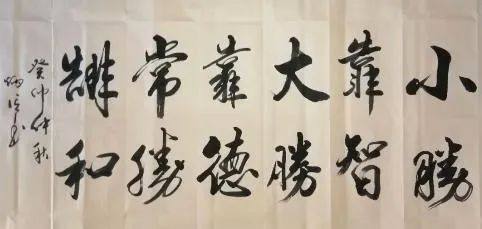 小勝
靠智
大勝
靠德
常勝
靠和
癸卯仲秋
书